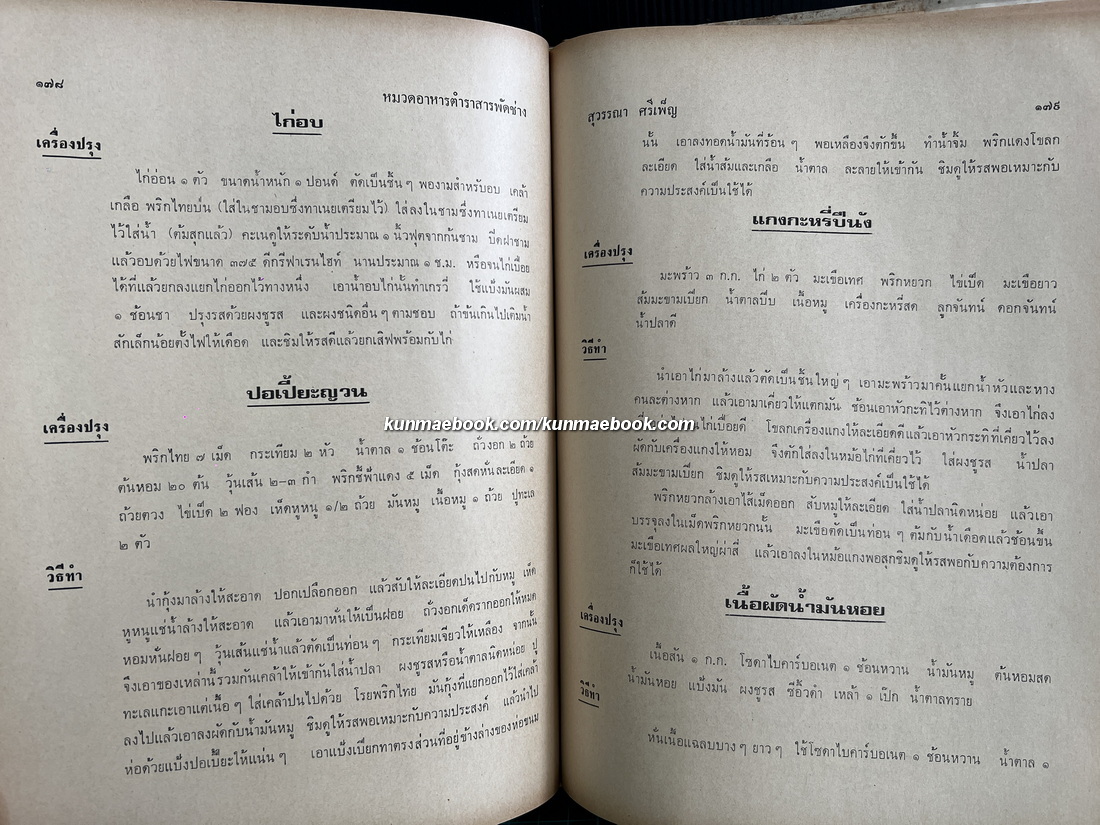 ๑๗๘
หมวดอาหารตำราสารพัดช่าง
ไก่อบ
เครื่องปรุง
ไก่อ่อน ๑ ตัว ขนาดน้ำหนัก ๑ ปอนด์ ตัดเป็นชิ้น ๆ พองามสำหรับอบ เคล้า
เกลือ พริกไทยป่น (ใส่ในชามอบซึ่งทาเนยเตรียมไว้) ใส่ลงในชามซึ่งทาเนยเตรียม
ไว้ใส่น้ำ (ต้มสุกแล้ว) คะเนดูให้ระดับน้ำประมาณ ๑ นิ้วฟุตจากก้นชาม ปิดฝาชาม
แล้วอบด้วยไฟขนาด ๓๗๕ ดีกรีฟาเรนไฮท์ นานประมาณ ๑ ช.ม. หรือจนไก่เปื่อย
ได้ที่แล้วยกลงแยกไก่ออกไว้ทางหนึ่ง เอาน้ำอบไก่นั้นทำเกรวี่ ใช้แป้งมันผสม
๑ ช้อนชา ปรุงรสด้วยผงชูรส และผงชนิดอื่น ๆ ตามชอบ ถ้าข้นเกินไปเติมน้ำ
สักเล็กน้อยตั้งไฟให้เดือด และชิมให้รสดีแล้วยกเสิฟพร้อมกับไก่
ปอเปี้ยะญวน
เครื่องปรุง
พริกไทย ๗ เม็ด กระเทียม ๒ หัว น้ำตาล ๑ ช้อนโต๊ะ ถั่วงอก ๒ ถ้วย
ต้นหอม ๒๐ ต้น วุ้นเส้น ๒–๓ กำ พริกชี้ฟ้าแดง ๕ เม็ด กุ้งสดหั่นละเอียด ๑
ถ้วยตวง ไข่เป็ด ๒ ฟอง เห็ดหูหนู ๑/๒ ถ้วย มันหมู เนื้อหมู ๑ ถ้วย ปูทะเล
๒ ตัว
วิธีทำ
นำกุ้งมาล้างให้สะอาด ปอกเปลือกออก แล้วสับให้ละเอียดปนไปกับหมู เห็ด
หูหนูแช่น้ำล้างให้สะอาด แล้วเอามาหั่นให้เป็นฝอย ถั่วงอกเด็ดรากออกให้หมด
หอมหั่นฝอย ๆ วุ้นเส้นแช่น้ำแล้วตัดเป็นท่อน ๆ กระเทียมเจียวให้เหลือง จากนั้น
จึงเอาของเหล่านี้รวมกันเคล้าให้เข้ากันใส่น้ำปลา ผงชูรสหรือน้ำตาลนิดหน่อย ปู
ทะเลแกะเอาแต่เนื้อ ๆ ใส่เคล้าปนไปด้วย โรยพริกไทย มันกุ้งที่แยกออกไว้ใส่เคล้า
ลงไปแล้วเอาลงผัดกับน้ำมันหมู ชิมดูให้รสพอเหมาะกับความประสงค์ แล้วนำไป
ห่อด้วยแป้งปอเปี้ยะให้แน่น ๆ เอาแป้งเปียกทาตรงส่วนที่อยู่ข้างล่างของห่อขนม
สุวรรณา ศรีเพ็ญ
๑๗๙
นั้น เอาลงทอดน้ำมันที่ร้อน ๆ พอเหลืองจึงตักขึ้น ทำน้ำจิ้ม พริกแดงโขลก
ละเอียด ใส่น้ำส้มและเกลือ น้ำตาล ละลายให้เข้ากัน ชิมดูให้รสพอเหมาะกับ
ความประสงค์เป็นใช้ได้
แกงกะหรี่ปีนัง
เครื่องปรุง
มะพร้าว ๓ ก.ก. ไก่ ๒ ตัว มะเขือเทศ พริกหยวก ไข่เป็ด มะเขือยาว
ส้มมะขามเปียก น้ำตาลปีบ เนื้อหมู เครื่องกะหรี่สด ลูกจันทน์ ดอกจันทน์
น้ำปลาดี
วิธีทำ
นำเอาไก่มาล้างแล้วตัดเป็นชิ้นใหญ่ ๆ เอามะพร้าวมาคั้นแยกน้ำหัวและหาง
คนละต่างหาก แล้วเอามาเคี่ยวให้แตกมัน ช้อนเอาหัวกะทิไว้ต่างหาก จึงเอาไก่ลง
ไก่เปื่อยดี โขลกเครื่องแกงให้ละเอียดดีแล้วเอาหัวกะทิที่เคี่ยวไว้ลง
ผัดกับเครื่องแกงให้หอม จึงตักใส่ลงในหม้อไก่ที่เคี่ยวไว้ ใส่ผงชูรส น้ำปลา
ส้มมะขามเปียก ชิมดูให้รสเหมาะกับความประสงค์เป็นใช้ได้
พริกหยวกล้างเอาไส้เม็ดออก สับหมูให้ละเอียด ใส่น้ำปลานิดหน่อย แล้วเอา
บรรจุลงในเม็ดพริกหยวกนั้น มะเขือตัดเป็นท่อน ๆ ต้มกับน้ำเดือดแล้วช้อนขึ้น
มะเขือเทศผลใหญ่ผ่าสี่ แล้วเอาลงในหม้อแกงพอสุกชิมดูให้รสพอกับความต้องการ
ก็ใช้ได้
เนื้อผัดน้ำมันหอย
เครื่องปรุง
เนื้อสัน ๑ ก.ก. โซดาไบคาร์บอเนต ๑ ช้อนหวาน น้ำมันหมู ต้นหอมสด
น้ำมันหอย แป้งมัน ผงชูรส ซีอิ๊วดำ เหล้า ๑ เป๊ก น้ำตาลทราย
วิธีทำ
หั่นเนื้อแฉลบบาง ๆ ยาว ๆ ใช้โซดาไบคาร์บอเนต ๑ ช้อนหวาน น้ำตาล ๑
kunmaebook.com/kunmaebook.com